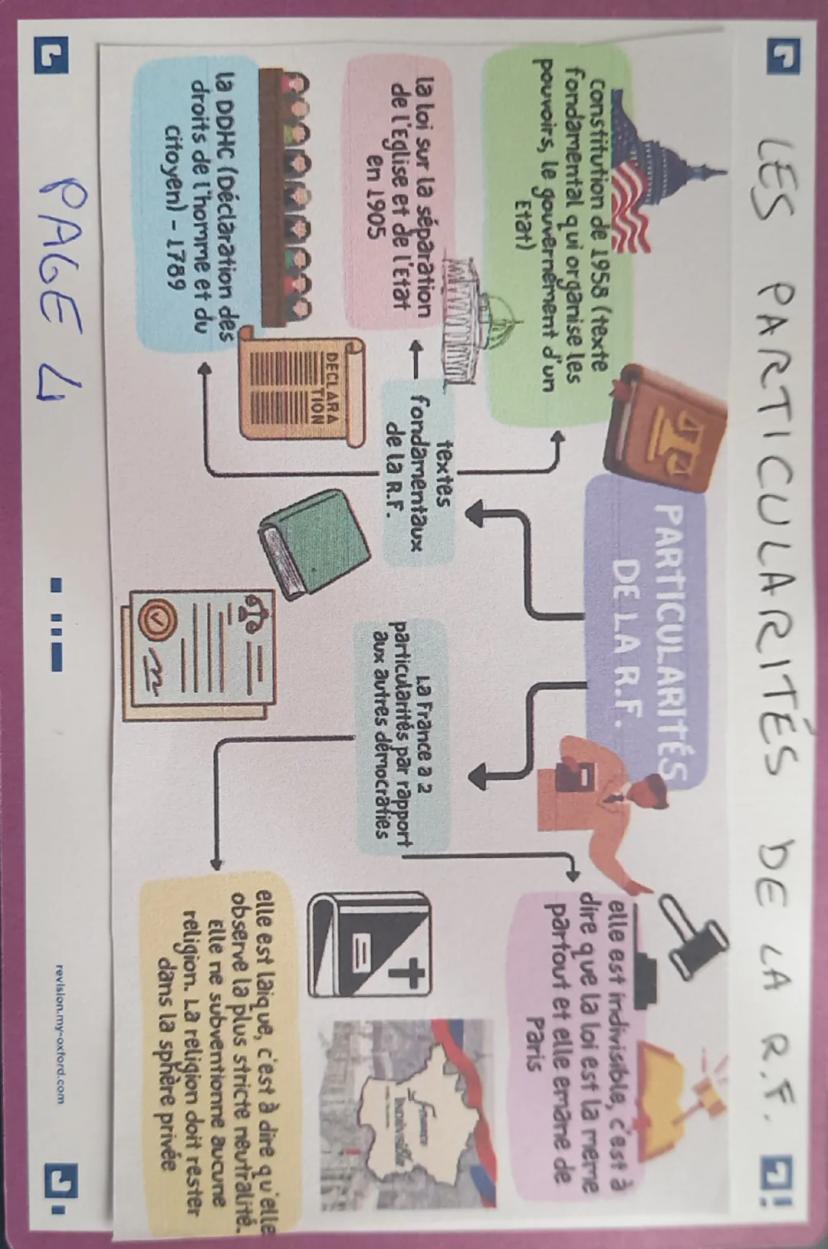 LES PARTICULARITÉS DE LA R.F.
PARTICULARITÉS
DE LA R.F.
textes
fondamentaux
de la R.F.
constitution de 1958 (texte
fondamental qui organise les
pouvoirs, le gouvernement d'un
Etat)
la loi sur la séparation
de l'Eglise et de l'Etat
en 1905
la DDHC (Déclaration des
droits de l'homme et du
citoyen) - 1789
DECLARA
TION
La France a 2
particularités par rapport
aux autres démocraties
elle est indivisible, c'est à
dire que la loi est la meme
partout et elle emane de
Paris
France
elle est laique, c'est à dire qu'elle
observe la plus stricte neutralité.
Elle ne subventionne aucune
religion. La religion doit rester
dans la sphère privée
PAGE 4
revision.my-oxford.com